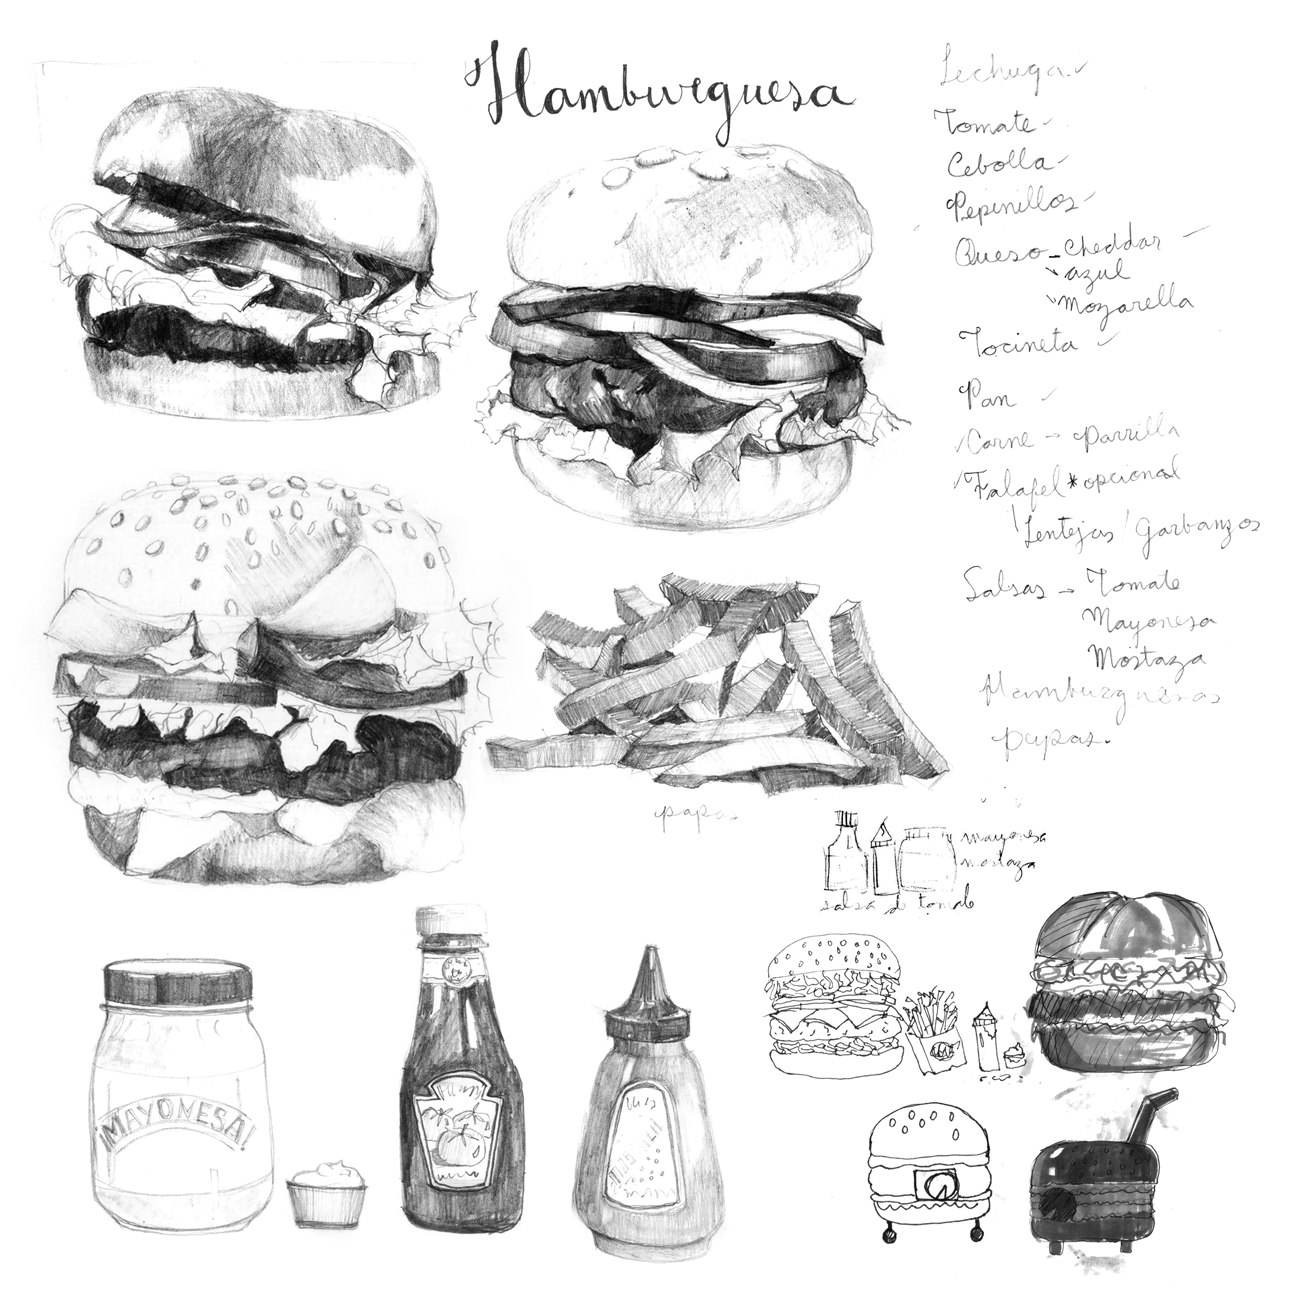 Hamburguesa
Lechuga.
Tomate
Cebolla
Pepinillos
Queso - Cheddar
azul
Mozarella
Tocineta
Pan
Carne → Parrilla
Falafel * opcional
Lentejas / Garbanzos
Salsas → Tomate
Mayonesa
Mostaza
Hamburguesas
papas.
papas
mayonesa
mostaza
salsa d tomate
¡MAYONESA!